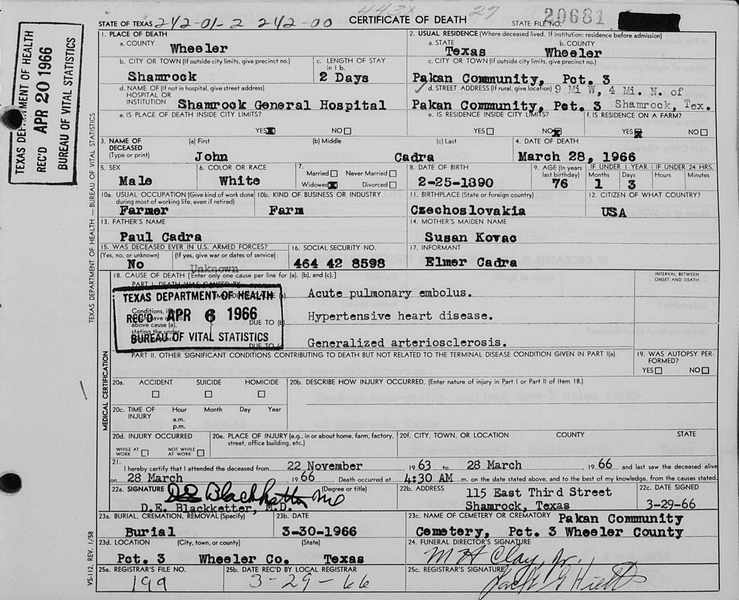 242-01-2 242-00
27
STATE OF TEXAS
CERTIFICATE OF DEATH
STATE FILE NO.
20681
TEXAS DEPARTMENT OF HEALTH
REC'D APR 20 1966
BUREAU OF VITAL STATISTICS
1. PLACE OF DEATH
a. COUNTY
Wheeler
2. USUAL RESIDENCE (Where deceased lived. If institution: residence before admission)
a. STATE
Texas
b. COUNTY
Wheeler
b. CITY OR TOWN (If outside city limits, give precinct no.)
Shamrock
c. LENGTH OF STAY
in 1 b.
2 Days
c. CITY OR TOWN (If outside city limits, give precinct no.)
Pakan Community, Pct. 3
d. NAME OF (If not in hospital, give street address)
HOSPITAL OR
INSTITUTION
Shamrock General Hospital
d. STREET ADDRESS (If rural, give location)
9 Mi W, 4 Mi. N. of
Pakan Community, Pct. 3 Shamrock, Tex.
e. IS PLACE OF DEATH INSIDE CITY LIMITS?
YES NO
e. IS RESIDENCE INSIDE CITY LIMITS?
YES NO
f. IS RESIDENCE ON A FARM?
YES NO
3. NAME OF
DECEASED
(Type or print)
(a) First
John
(b) Middle
(c) Last
Cadra
4. DATE OF DEATH
March 28, 1966
5. SEX
Male
6. COLOR OR RACE
White
7.
Married Never Married
Widowed Divorced
8. DATE OF BIRTH
2-25-1890
9. AGE (In years
last birthday)
76
IF UNDER 1 YEAR
Months Days
1 3
IF UNDER 24 HRS.
Hours Minutes
10a. USUAL OCCUPATION (Give kind of work done
during most of working life, even if retired)
Farmer
10b. KIND OF BUSINESS OR INDUSTRY
Farm
11. BIRTHPLACE (State or foreign country)
Czechoslovakia
12. CITIZEN OF WHAT COUNTRY?
USA
13. FATHER'S NAME
Paul Cadra
14. MOTHER'S MAIDEN NAME
Susan Kovac
15. WAS DECEASED EVER IN U.S. ARMED FORCES?
(Yes, no, or unknown) (If yes, give war or dates of service)
No
Unknown
16. SOCIAL SECURITY NO.
464 42 8598
17. INFORMANT
Elmer Cadra
18. CAUSE OF DEATH [Enter only one cause per line for (a), (b), and (c).]
INTERVAL BETWEEN
ONSET AND DEATH
PART I. DEATH WAS CAUSED BY
(a)
Acute pulmonary embolus.
DUE TO (b)
Hypertensive heart disease.
DUE TO
Generalized arteriosclerosis.
TEXAS DEPARTMENT OF HEALTH
REC'D APR 6 1966
BUREAU OF VITAL STATISTICS
PART II. OTHER SIGNIFICANT CONDITIONS CONTRIBUTING TO DEATH BUT NOT RELATED TO THE TERMINAL DISEASE CONDITION GIVEN IN PART I(a)
19. WAS AUTOPSY PER-
FORMED?
YES NO
20a. ACCIDENT SUICIDE HOMICIDE
20b. DESCRIBE HOW INJURY OCCURRED. (Enter nature of injury in Part I or Part II of item 18.)
20c. TIME OF
INJURY
Hour Month Day Year
a.m.
p.m.
20d. INJURY OCCURRED
WHILE AT
WORK
NOT WHILE
AT WORK
20e. PLACE OF INJURY (e.g., in or about home, farm, factory,
street, office building, etc.)
20f. CITY, TOWN, OR LOCATION COUNTY STATE
21.
I hereby certify that I attended the deceased from 22 November 1963 to 28 March 1966 and last saw the deceased alive
on 28 March 1966 Death occurred at 4:30 AM m. on the date stated above; and to the best of my knowledge, from the causes stated.
22a. SIGNATURE
(Degree or title)
D.E. Blackketter MD
D.E. Blackketter, M.D.
22b. ADDRESS
115 East Third Street
Shamrock, Texas
22c. DATE SIGNED
3-29-66
23a. BURIAL, CREMATION, REMOVAL (Specify)
Burial
23b. DATE
3-30-1966
23c. NAME OF CEMETERY OR CREMATORY
Pakan Community
Cemetery, Pct. 3 Wheeler County
23d. LOCATION (City, town, or county) (State)
Pct. 3 Wheeler Co. Texas
24. FUNERAL DIRECTOR'S SIGNATURE
M H Clay, Jr.
25a. REGISTRAR'S FILE NO.
199
25b. DATE REC'D BY LOCAL REGISTRAR
3-29-66
25c. REGISTRAR'S SIGNATURE
TEXAS DEPARTMENT OF HEALTH — BUREAU OF VITAL STATISTICS
MEDICAL CERTIFICATION
VS-112, REV. 1/58